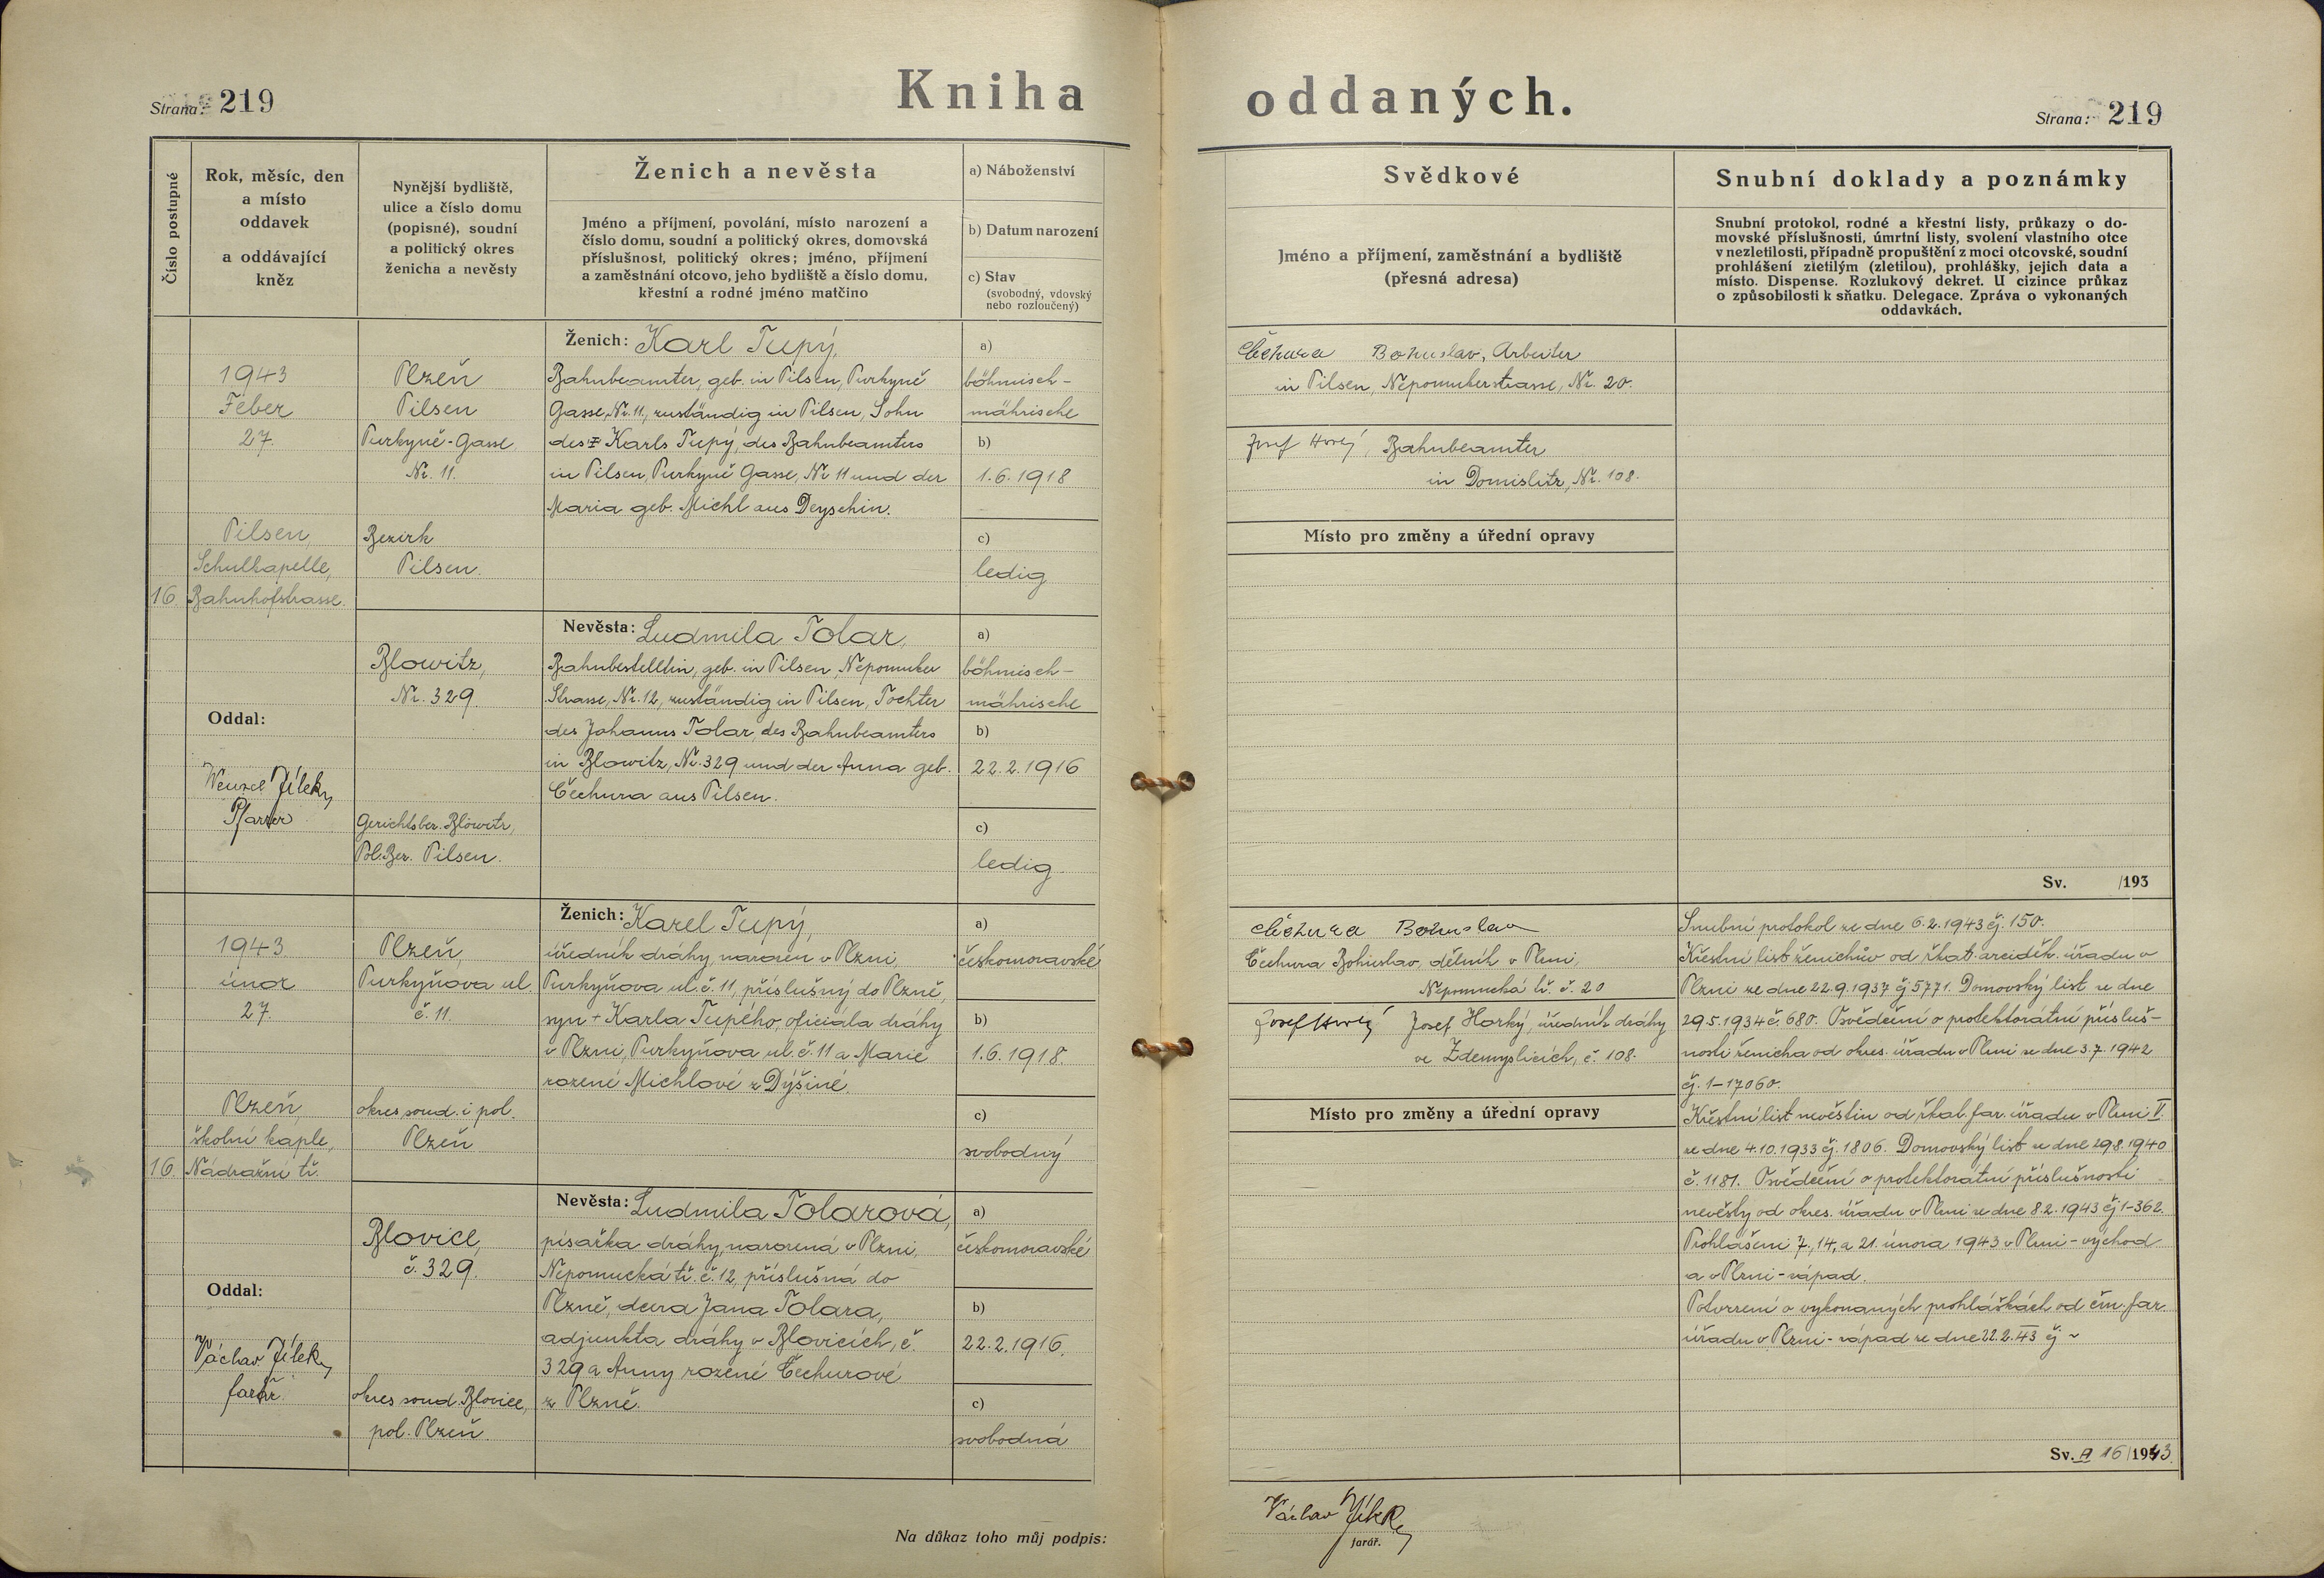 Strana: 219
Kniha oddaných.
Strana: 219
Číslo postupné
Rok, měsíc, den
a místo
oddavek
a oddávající
kněz
Nynější bydliště,
ulice a číslo domu
(popisné), soudní
a politický okres
ženicha a nevěsty
Ženich a nevěsta
Jméno a příjmení, povolání, místo narození a
číslo domu, soudní a politický okres, domovská
příslušnost, politický okres; jméno, příjmení
a zaměstnání otcovo, jeho bydliště a číslo domu,
křestní a rodné jméno matčino
a) Náboženství
b) Datum narození
c) Stav
(svobodný, vdovský
nebo rozloučený)
Svědkové
Jméno a příjmení, zaměstnání a bydliště
(přesná adresa)
Snubní doklady a poznámky
Snubní protokol, rodné a křestní listy, průkazy o do-
movské příslušnosti, úmrtní listy, svolení vlastního otce
v nezletilosti, případně propuštění z moci otcovské, soudní
prohlášení zletilým (zletilou), prohlášky, jejich data a
místo. Dispense. Rozlukový dekret. U cizince průkaz
o způsobilosti k sňatku. Delegace. Zpráva o vykonaných
oddavkách.
1943
Feber
27.
Pilsen,
Schulkapelle,
16. Bahnhofstrasse.
Oddal:
Wenzel Jílek
Pfarrer
Plzeň
Pilsen
Purkyně-Gasse
Nr. 11.
Bezirk
Pilsen.
Blowitz,
Nr. 329.
Gerichtsbez. Blowitz,
Pol. Bez. Pilsen.
Ženich: Karl Tupý,
Bahnbeamter, geb. in Pilsen, Purkyně
Gasse, Nr. 11, zuständig in Pilsen, Sohn
des Karls Tupý, des Bahnbeamters
in Pilsen, Purkyně Gasse, Nr 11 und der
Maria geb. Michl aus Deyschin.
Nevěsta: Ludmila Tolar,
Bahnbestelltin, geb. in Pilsen, Nepomuker
Strasse, Nr. 12, zuständig in Pilsen, Tochter
des Johanns Tolar, des Bahnbeamters
in Blowitz, Nr. 329 und der Anna geb.
Čechura aus Pilsen.
a)
böhmisch-
mährische
b)
1.6.1918
c)
ledig
a)
böhmisch-
mährische
b)
22.2.1916
c)
ledig.
Čechura Bohuslav, Arbeiter
in Pilsen, Nepomukerstrasse, Nr. 20.
Josef Horký, Bahnbeamter
in Domislitz, Nr. 108.
Místo pro změny a úřední opravy
Sv. /193
1943.
únor
27.
Plzeň,
školní kaple,
16. Nádražní tř.
Oddal:
Václav Jílek
farář.
Plzeň,
Purkyňova ul.
č. 11.
okres soud. i pol.
Plzeň
Blovice,
č. 329.
okres soud. Blovice,
pol. Plzeň.
Ženich: Karel Tupý,
úředník dráhy, narozen v Plzni,
Purkyňova ul. č. 11, příslušný do Plzně,
syn + Karla Tupého, oficiála dráhy
v Plzni, Purkyňova ul. č. 11 a Marie
rozené Michlové z Dýšiné.
Nevěsta: Ludmila Tolarová,
písařka dráhy, narozená v Plzni,
Nepomucká tř. č. 12, příslušná do
Plzně, dcera Jana Tolara,
adjunkta dráhy v Blovicích, č.
329 a Anny rozené Čechurové
z Plzně.
a)
českomoravské
b)
1.6.1918.
c)
svobodný
a)
českomoravské
b)
22.2.1916.
c)
svobodná
Čechura Bohuslav
Čechura Bohuslav, dělník v Plzni,
Nepomucká tř. č. 20
Josef Horký Josef Horký, úředník dráhy
ve Zdemyslicích, č. 108.
Místo pro změny a úřední opravy
Snubní protokol ze dne 6.2.1943 čj. 150.
Křestní list ženichův od řkat. arciděk. úřadu v
Plzni ze dne 22.9.1937 čj 5771. Domovský list ze dne
29.5.1934 č. 680. Osvědčení o protektorátní přísluš-
nosti ženicha od okres. úřadu v Plzni ze dne 3.7.1942
čj. 1-17060.
Křestní list nevěstin od řkat. far. úřadu v Plzni V.
ze dne 4.10.1933 čj. 1806. Domovský list ze dne 29.8.1940
č. 1181. Osvědčení o protektorátní příslušnosti
nevěsty od okres. úřadu v Plzni ze dne 8.2.1943 čj 1-362.
Prohlášeni 7., 14., a 21. února 1943 v Plzni-východ
a v Plzni-západ.
Potvrzení o vykonaných prohláškách od čm. far.
úřadu v Plzni-západ ze dne 22.2.43 čj ~
Sv. A 16/1943.
Na důkaz toho můj podpis:
Václav Jílek
farář.